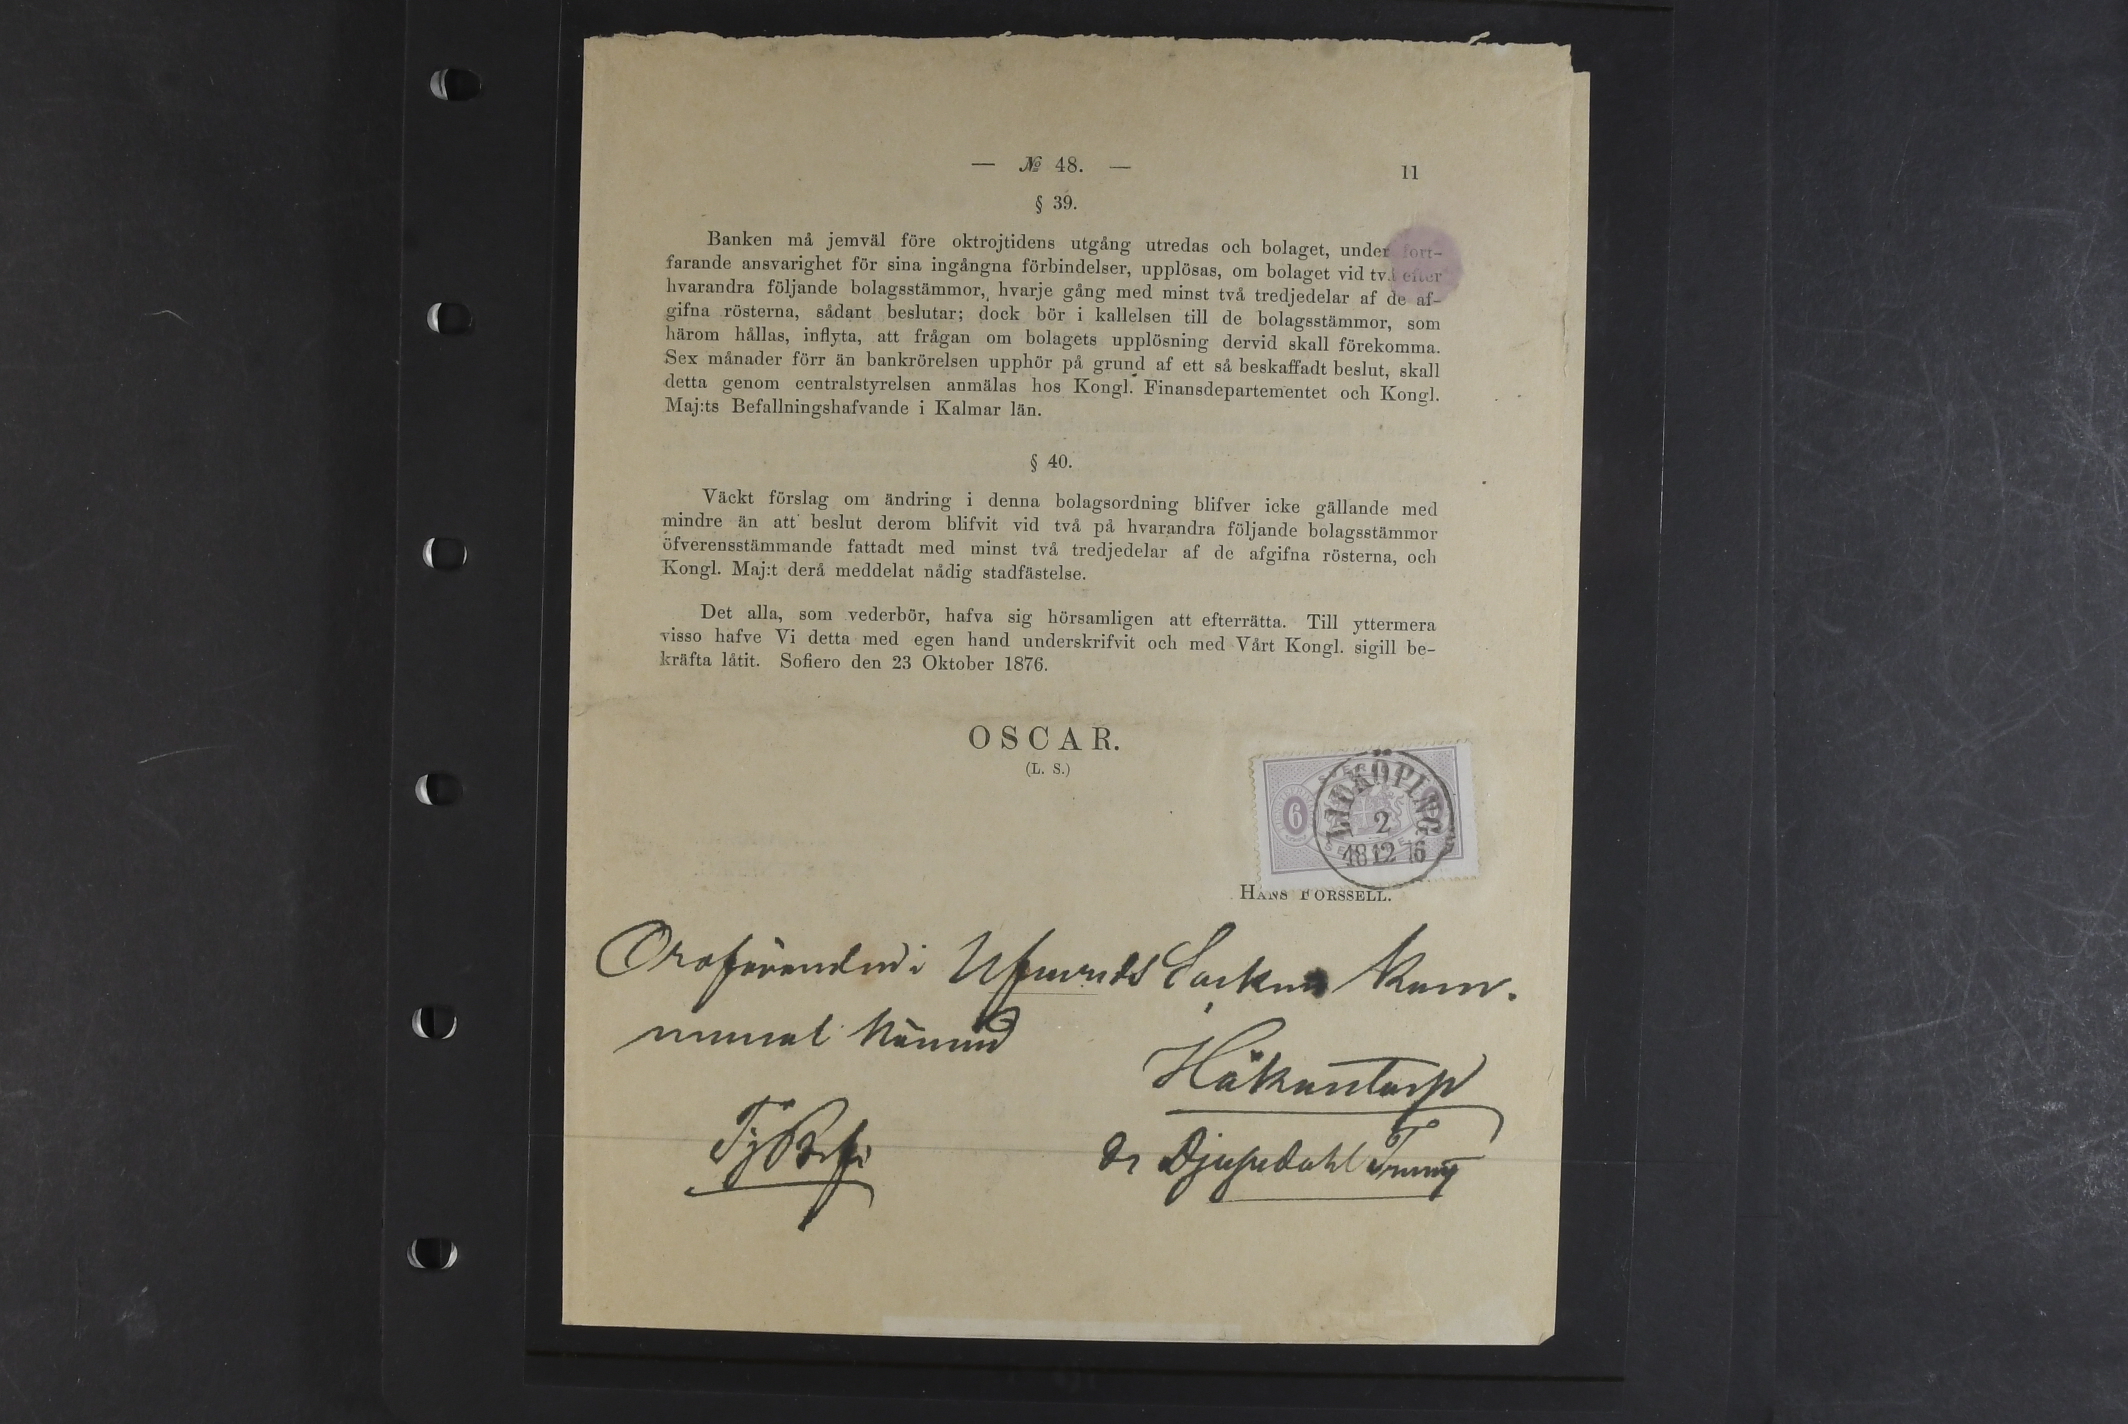 — № 48. — 11
§ 39.
Banken må jemväl före oktrojtidens utgång utredas och bolaget, under fort-
farande ansvarighet för sina ingångna förbindelser, upplösas, om bolaget vid två efter
hvarandra följande bolagsstämmor, hvarje gång med minst två tredjedelar af de af-
gifna rösterna, sådant beslutar; dock bör i kallelsen till de bolagsstämmor, som
härom hållas, inflyta, att frågan om bolagets upplösning dervid skall förekomma.
Sex månader förr än bankrörelsen upphör på grund af ett så beskaffadt beslut, skall
detta genom centralstyrelsen anmälas hos Kongl. Finansdepartementet och Kongl.
Maj:ts Befallningshafvande i Kalmar län.
§ 40.
Väckt förslag om ändring i denna bolagsordning blifver icke gällande med
mindre än att beslut derom blifvit vid två på hvarandra följande bolagsstämmor
öfverensstämmande fattadt med minst två tredjedelar af de afgifna rösterna, och
Kongl. Maj:t derå meddelat nådig stadfästelse.
Det alla, som vederbör, hafva sig hörsamligen att efterrätta. Till yttermera
visso hafve Vi detta med egen hand underskrifvit och med Vårt Kongl. sigill be-
kräfta låtit. Sofiero den 23 Oktober 1876.
OSCAR.
(L. S.)
6
LIDKÖPING
2
18 12 76
HANS FORSSELL.
Ordföranden i Socknens Kom-
munal Nämnd
Håkantorp